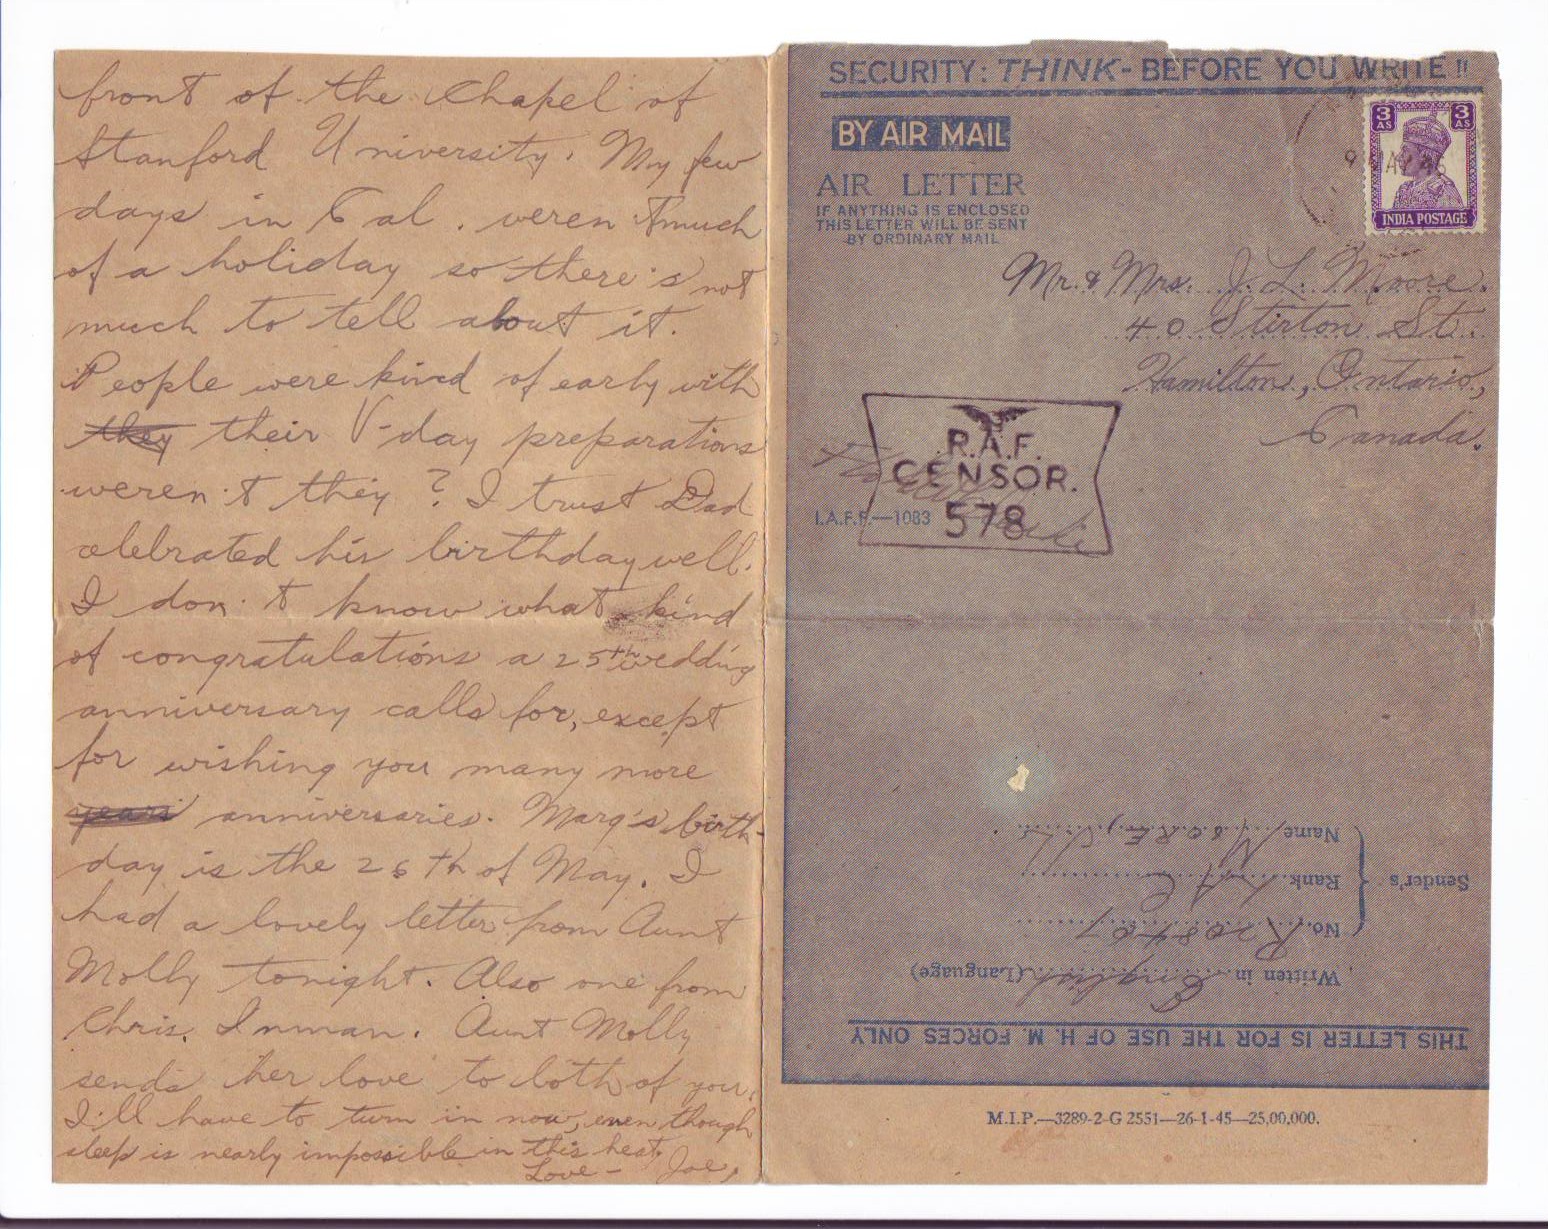 front of the Chapel of
Stanford University. My few
days in Cal. weren't much
of a holiday so there's not
much to tell about it.
People were kind of early with
they their V-day preparations
weren't they? I trust Dad
celebrated his birthday well.
I don't know what kind
of congratulations a 25th wedding
anniversary calls for, except
for wishing you many more
years anniversaries. Marg's birth-
day is the 26th of May. I
had a lovely letter from Aunt
Molly tonight. Also one from
Chris. Inman. Aunt Molly
sends her love to both of you.
I'll have to turn in now, even though
sleep is nearly impossible in this heat.
Love - Joe,
SECURITY: THINK - BEFORE YOU WRITE !!
BY AIR MAIL
AIR LETTER
IF ANYTHING IS ENCLOSED
THIS LETTER WILL BE SENT
BY ORDINARY MAIL
3 AS 3 AS
INDIA POSTAGE
Mr. & Mrs. J. L. Moore.
40 Stirton St.
Hamilton, Ontario,
Canada.
R.A.F.
CENSOR.
578
I.A.F.F.—1083
Sender's
Name
Rank
No. R208407
Written in English (Language)
THIS LETTER IS FOR THE USE OF H. M. FORCES ONLY
M.I.P.—3289-2-G 2551—26-1-45—25,00,000.